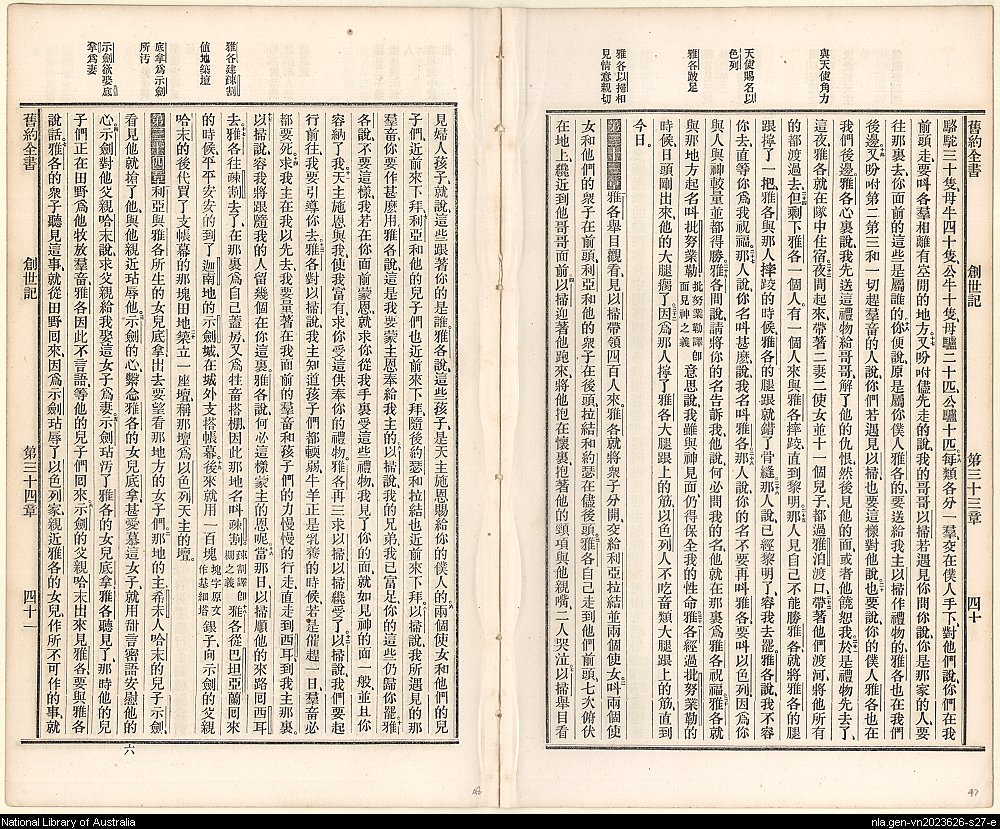 舊約全書 創世記 第三十三章 四十
與天使角力
天使賜名以
色列
雅各跛足
雅各以掃相
見情意親切
駱駝三十隻母牛四十隻公牛十隻母驢二十匹公驢十匹每類各分一羣交在僕人手下對他們說你們在我
前頭走要叫各羣相離有空閒的地方又吩咐儘先走的說我的哥哥以掃若遇見你問你說你是那家的人要
往那裏去你面前的這些是屬誰的你便說原是屬你僕人雅各的要送給我主以掃作禮物的雅各也在我們
後邊又吩咐第二第三和一切趕羣畜的人說你們若遇見以掃也要這樣對他說也要說你的僕人雅各也在
我們後邊雅各心裏說我先送這禮物給哥哥解了他的仇恨然後見他的面或者他饒恕我於是禮物先去了
這夜雅各就在隊中住宿夜間起來帶著二妻二使女並十一個兒子都過雅泊渡口帶著他們渡河將他所有
的都渡過去但剩下雅各一個人有一個人來與雅各摔跤直到黎明那人見自己不能勝雅各就將雅各的腿
跟擰了一把雅各與那人摔跤的時候雅各的腿跟就錯了骨縫那人說已經黎明了容我去罷雅各說我不容
你去直等你為我祝福那人說你名叫甚麼說我名叫雅各那人說你的名不要再叫雅各要叫以色列因為你
與人與神較量並都得勝雅各問說請將你的名告訴我他說何必問我的名他就在那裏為雅各祝福雅各就
與那地方起名叫批努業勒批努業勒譯即面見神之義意思說我雖與神見面仍得保全我的性命雅各經過批努業勒的
時候日頭剛出來他的大腿瘸了因為那人擰了雅各大腿跟上的筋以色列人不吃畜類大腿跟上的筋直到
今日
第三十三章雅各舉目觀看見以掃帶領四百人來雅各就將衆子分開交給利亞拉結並兩個使女叫兩個使
女和他們的衆子在前頭利亞和他的衆子在後頭拉結和約瑟在儘後頭雅各自己走到他們前頭七次俯伏
在地上纔近到他哥哥面前以掃迎著他跑來將他抱在懷裏抱著他的頸項與他親嘴二人哭泣以掃舉目看
47
見婦人孩子就說這些跟著你的是誰雅各說這些孩子是天主施恩賜給你的僕人的兩個使女和他們的兒
子們近前來下拜利亞和他的兒子們也近前來下拜隨後約瑟和拉結也近前來下拜以掃說我所遇見的那
羣畜你要作甚麼用雅各說這是我要蒙主恩奉給我主的以掃說我的兄弟我已富足你的這些仍歸你罷雅
各說不要這樣我若在你面前蒙恩就求你從我手裏受這些禮物我見了你的面就如見神的面一般並且你
容納了我天主施恩與我使我富有求你受這供奉你的禮物雅各再三求以掃以掃纔受了以掃說我們要起
行前往我要引導你去雅各對以掃說我主知道孩子們都輭弱牛羊正是乳養的時候若是催趕一日羣畜必
都要死求我主在我以先去我要量著在我面前的羣畜和孩子們的力慢慢的行走直走到西耳到我主那裏
以掃說容我將跟隨我的人留幾個在你這裏雅各說何必這樣蒙主的恩呢當那日以掃願他的來路囘西耳
去雅各往疎割去了在那裏為自己蓋房又為牲畜搭棚因此那地名叫疎割疎割譯即棚之義雅各從巴坦亞蘭囘來
的時候平平安安的到了迦南地的示劍城在城外支搭帳幕後來就用一百塊塊字原文作基細塔銀子向示劍的父親
哈末的後代買了支帳幕的那塊田地築立一座壇稱那壇為以色列天主的壇
第三十四章利亞與雅各所生的女兒底拿出去要望看那地方的女子們那地的主希未人哈末的兒子示劍
看見他就搶了他與他親近玷辱他示劍的心繫念雅各的女兒底拿甚愛慕這女子就用甜言密語安慰他的
心示劍對他父親哈末說求父親給我娶這女子為妻示劍玷汚了雅各的女兒底拿雅各聽見了那時他的兒
子們正在田野為他牧放羣畜雅各因此不言語等他的兒子們囘來示劍的父親哈末出來見雅各要與雅各
說話雅各的衆子聽見這事就從田野囘來因為示劍玷辱了以色列家親近雅各的女兒作所不可作的事就
舊約全書 創世記 第三十四章 四十一
雅各建疎割
値地築壇
底拿為示劍
所汚
示劍欲娶底
拿為妻
六
48
National Library of Australia
nla.gen-vn2023626-s27-e